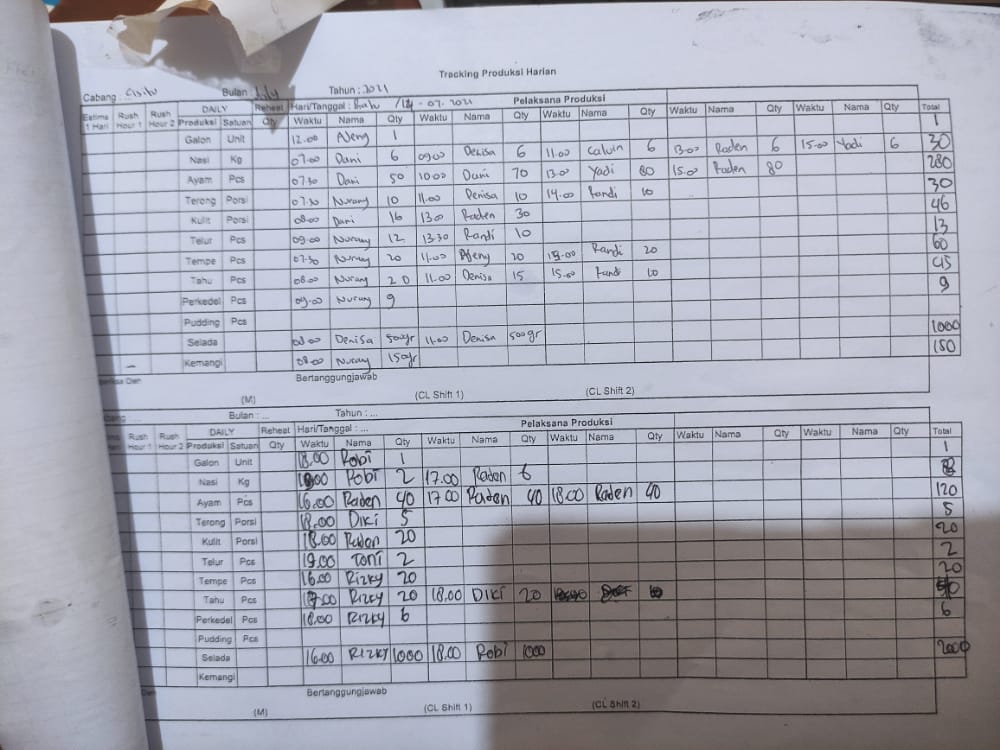 Tracking Produksi Harian
Cabang : Cisitu Bulan July Tahun : 2021
Estima 1 Hari Rush Hour 1 Rush Hour 2 DAILY Produksi Satuan Reheat Qty Hari/Tanggal : Rabu / 14 - 07. 2021 Pelaksana Produksi
Waktu Nama Qty Waktu Nama Qty Waktu Nama Qty Waktu Nama Qty Waktu Nama Qty Total
Galon Unit 12.00 Ajeng 1 1
Nasi Kg 07.00 Dani 6 09.00 Denisa 6 11.00 Calvin 6 13.00 Raden 6 15.00 Yadi 6 30
Ayam Pcs 07.30 Dani 50 10.00 Dani 70 13.00 Yadi 80 15.00 Raden 80 280
Terong Porsi 07.30 Nurany 10 11.00 Denisa 10 14.00 Randi 10 30
Kulit Porsi 08.00 Dani 16 13.00 Raden 30 46
Telur Pcs 09.00 Nurany 12 13.30 Randi 10 13
Tempe Pcs 07.30 Nurany 20 11.00 Ajeng 20 15.00 Randi 20 60
Tahu Pcs 08.00 Nurany 20 11.00 Denisa 15 15.00 Randi 10 45
Perkedel Pcs 09.00 Nurany 9 9
Pudding Pcs
Selada 08.00 Denisa 500gr 11.00 Denisa 500gr 1000
Kemangi 08.00 Nurany 150gr 150
Bertanggungjawab
(M) (CL Shift 1) (CL Shift 2)
Bulan : ... Tahun : ...
Rush Hour 1 Rush Hour 2 DAILY Produksi Satuan Reheat Qty Hari/Tanggal : ... Pelaksana Produksi
Waktu Nama Qty Waktu Nama Qty Waktu Nama Qty Waktu Nama Qty Waktu Nama Qty Total
Galon Unit 18.00 Robi 1 1
Nasi Kg Robi 2 17.00 Raden 6 8
Ayam Pcs 16.00 Raden 40 17.00 Raden 40 18.00 Raden 40 120
Terong Porsi 18.00 Diki 5 5
Kulit Porsi 18.00 Raden 20 20
Telur Pcs 19.00 Toni 2 2
Tempe Pcs 16.00 Rizky 20 20
Tahu Pcs 17.00 Rizky 20 18.00 Diki 20
Perkedel Pcs 18.00 Rizky 6 6
Pudding Pcs
Selada 16.00 Rizky 1000 18.00 Robi 1000 2000
Kemangi
Bertanggungjawab
(M) (CL Shift 1) (CL Shift 2)